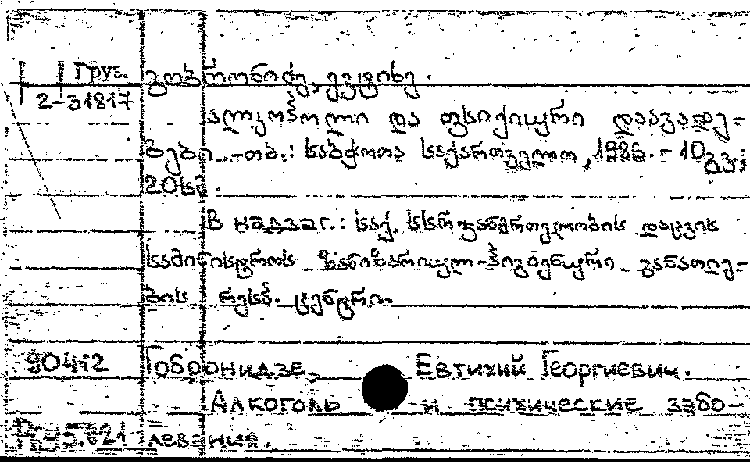 Груз.
2-31817
გობრონიძე, ევტიხი.
ალკოჰოლი და ფსიქიური დაავადე-
ბები. -თბ.: საბჭოთა საქართველო, 1986. - 10გვ;
20სმ.
В надзаг.: საქ. სსრ ჯანმრთელობის დაცვის
სამინისტროს სანიტარიულ-ჰიგიენური განათლე-
ბის რესპ. ცენტრი.
90412 Гоброnидзе, Евтихий Георгиевич.
Алкоголь и психические забо-
левания.